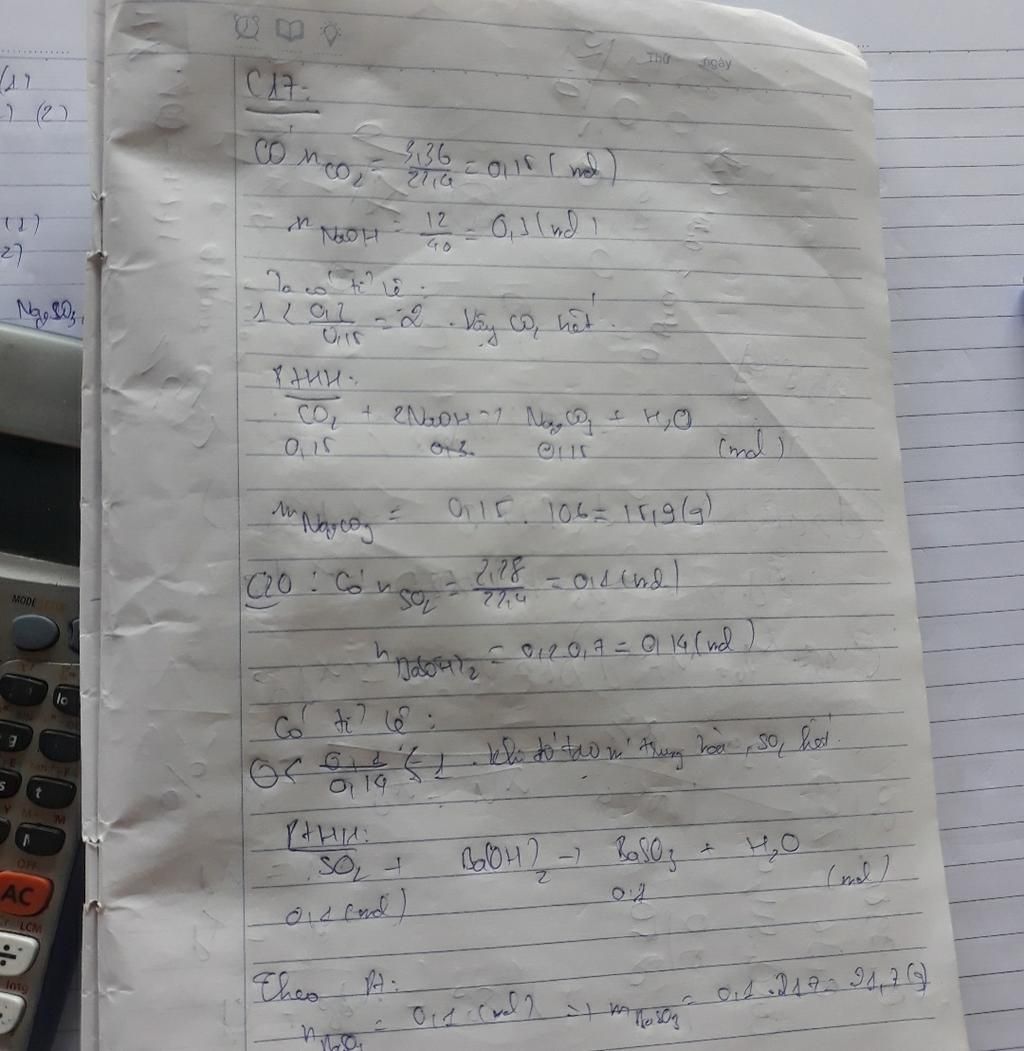 Thứ ngày
(1)
) (2)
(1)
2)
Na2SO3,
C17:
Có nCO2 = 3,36/22,4 = 0,15 (mol)
nNaOH = 12/40 = 0,3 (mol)
Ta có tỉ lệ:
1 < 0,3/0,15 = 2. Vậy CO2 hết.
PTHH:
CO2 + 2NaOH → Na2CO3 + H2O
0,15 0,3 0,15 (mol)
mNa2CO3 = 0,15 . 106 = 15,9 (g)
C20: Có nSO2 = 2,28/22,4 = 0,1 (mol)
nBa(OH)2 = 0,2.0,7 = 0,14 (mol)
Có tỉ lệ:
0 < 0,1/0,14 < 1. khi đó tạo m' trung hòa, SO2 hết.
PTHH:
SO2 + Ba(OH)2 → BaSO3 + H2O
0,1 (mol) 0,1 (mol)
Theo Pt:
nBaSO3 = 0,1 (mol) → mBaSO3 = 0,1 . 217 = 21,7 (g)
MODE
AC
OFF
LCM
÷